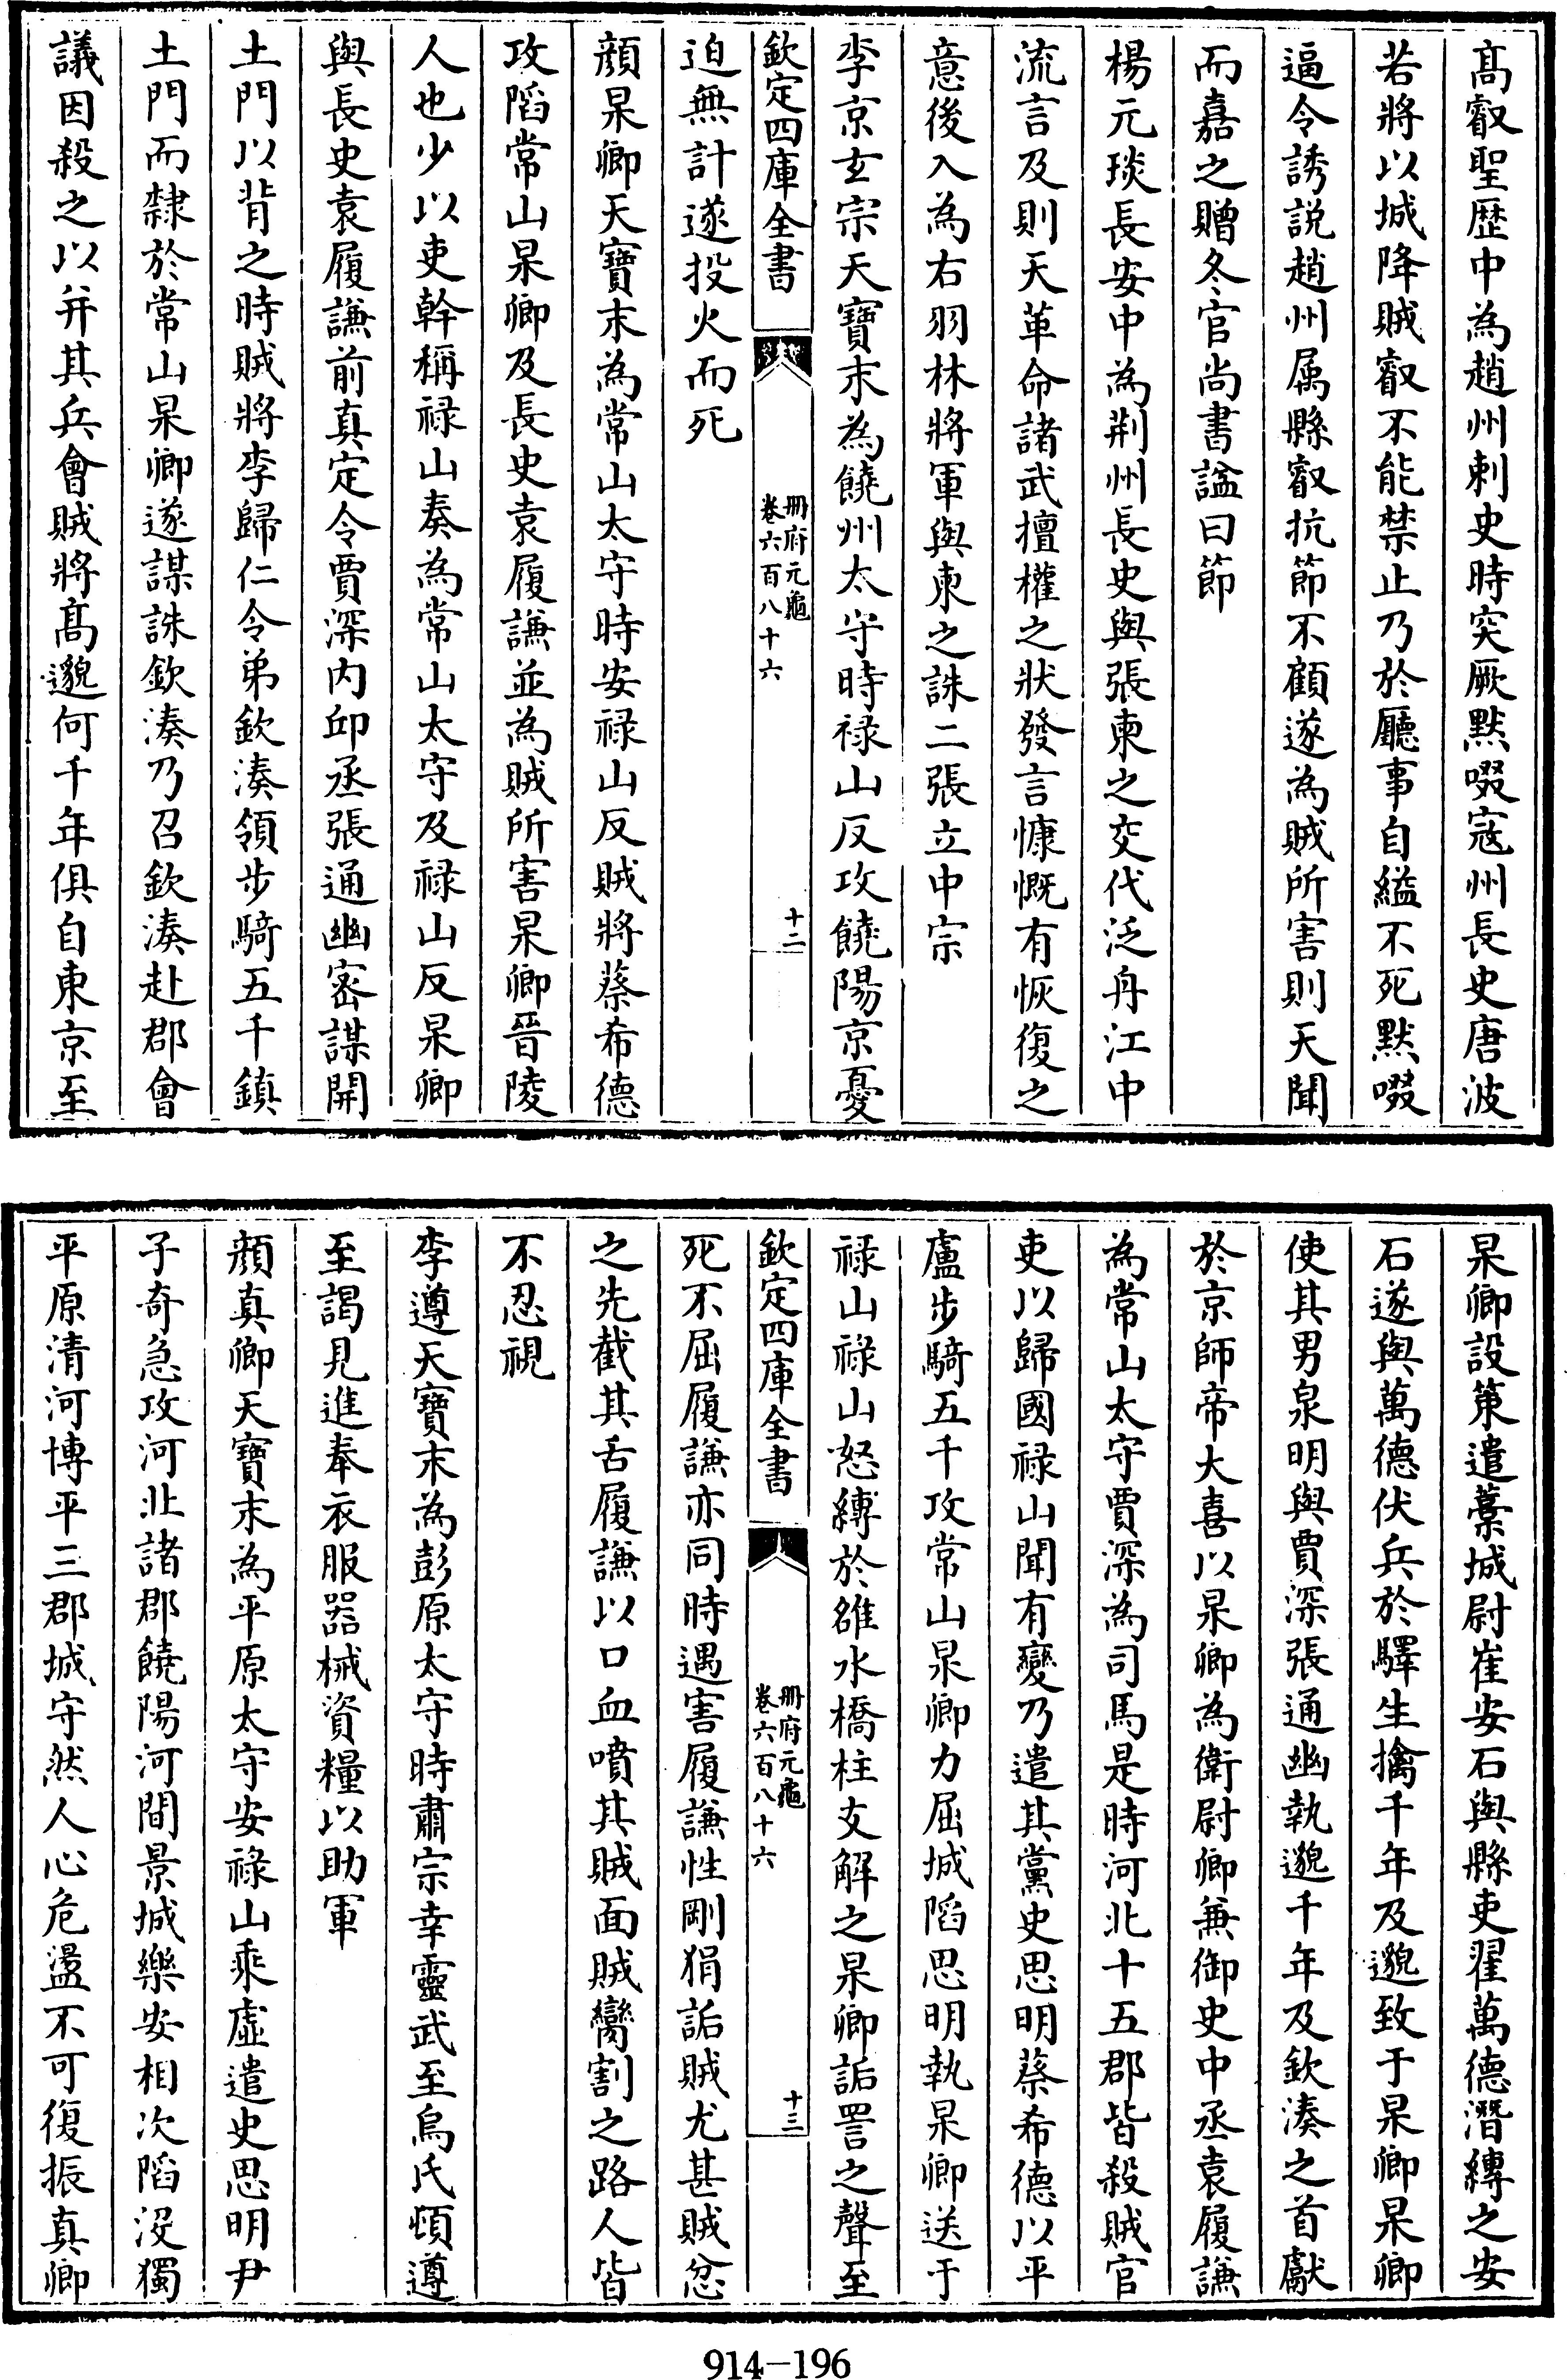 髙叡聖歴中為趙州刺史時突厥黙啜寇州長史唐波
若將以城降賊叡不能禁止乃於廳事自縊不死黙啜
逼令誘説趙州属縣叡抗節不顧遂為賊所害則天聞
而嘉之贈冬官尚書諡曰節
楊元琰長安中為荆州長史與張柬之交代泛舟江中
流言及則天革命諸武擅權之狀發言慷慨有恢復之
意後入為右羽林將軍與柬之誅二張立中宗
李京玄宗天寶末為饒州太守時禄山反攻饒陽京憂
欽定四庫全書
册府元龜
卷六百八十六
十二
迫無計遂投火而死
顔杲卿天寶末為常山太守時安禄山反賊將蔡希德
攻䧟常山杲卿及長史袁履謙並為賊所害杲卿晉陵
人也少以吏幹稱禄山奏為常山太守及禄山反杲卿
與長史袁履謙前真定令賈深内邱丞張通幽密謀開
土門以背之時賊將李歸仁令弟欽湊領步騎五千鎮
土門而隸於常山杲卿遂謀誅欽湊乃召欽湊赴郡會
議因殺之以并其兵會賊將髙邈何千年俱自東京至
杲卿設策遣藁城尉崔安石與縣吏翟萬德潛縛之安
石遂與萬德伏兵於驛生擒千年及邈致于杲卿杲卿
使其男泉明與賈深張通幽執邈千年及欽湊之首獻
於京師帝大喜以杲卿為衛尉卿兼御史中丞袁履謙
為常山太守賈深為司馬是時河北十五郡皆殺賊官
吏以歸國禄山聞有變乃遣其黨史思明蔡希德以平
盧步騎五千攻常山杲卿力屈城䧟思明執杲卿送于
禄山禄山怒縛於雒水橋柱支解之杲卿詬詈之聲至
欽定四庫全書
册府元龜
卷六百八十六
十三
死不屈履謙亦同時遇害履謙性剛狷詬賊尤甚賊忿
之先截其舌履謙以口血噴其賊面賊臠割之路人皆
不忍視
李遵天寶末為彭原太守時肅宗幸靈武至烏氏頓遵
至謁見進奉衣服器械資糧以助軍
顔真卿天寶末為平原太守安禄山乘虛遣史思明尹
子奇急攻河北諸郡饒陽河間景城樂安相次䧟沒獨
平原清河博平三郡城守然人心危盪不可復振真卿
914-196